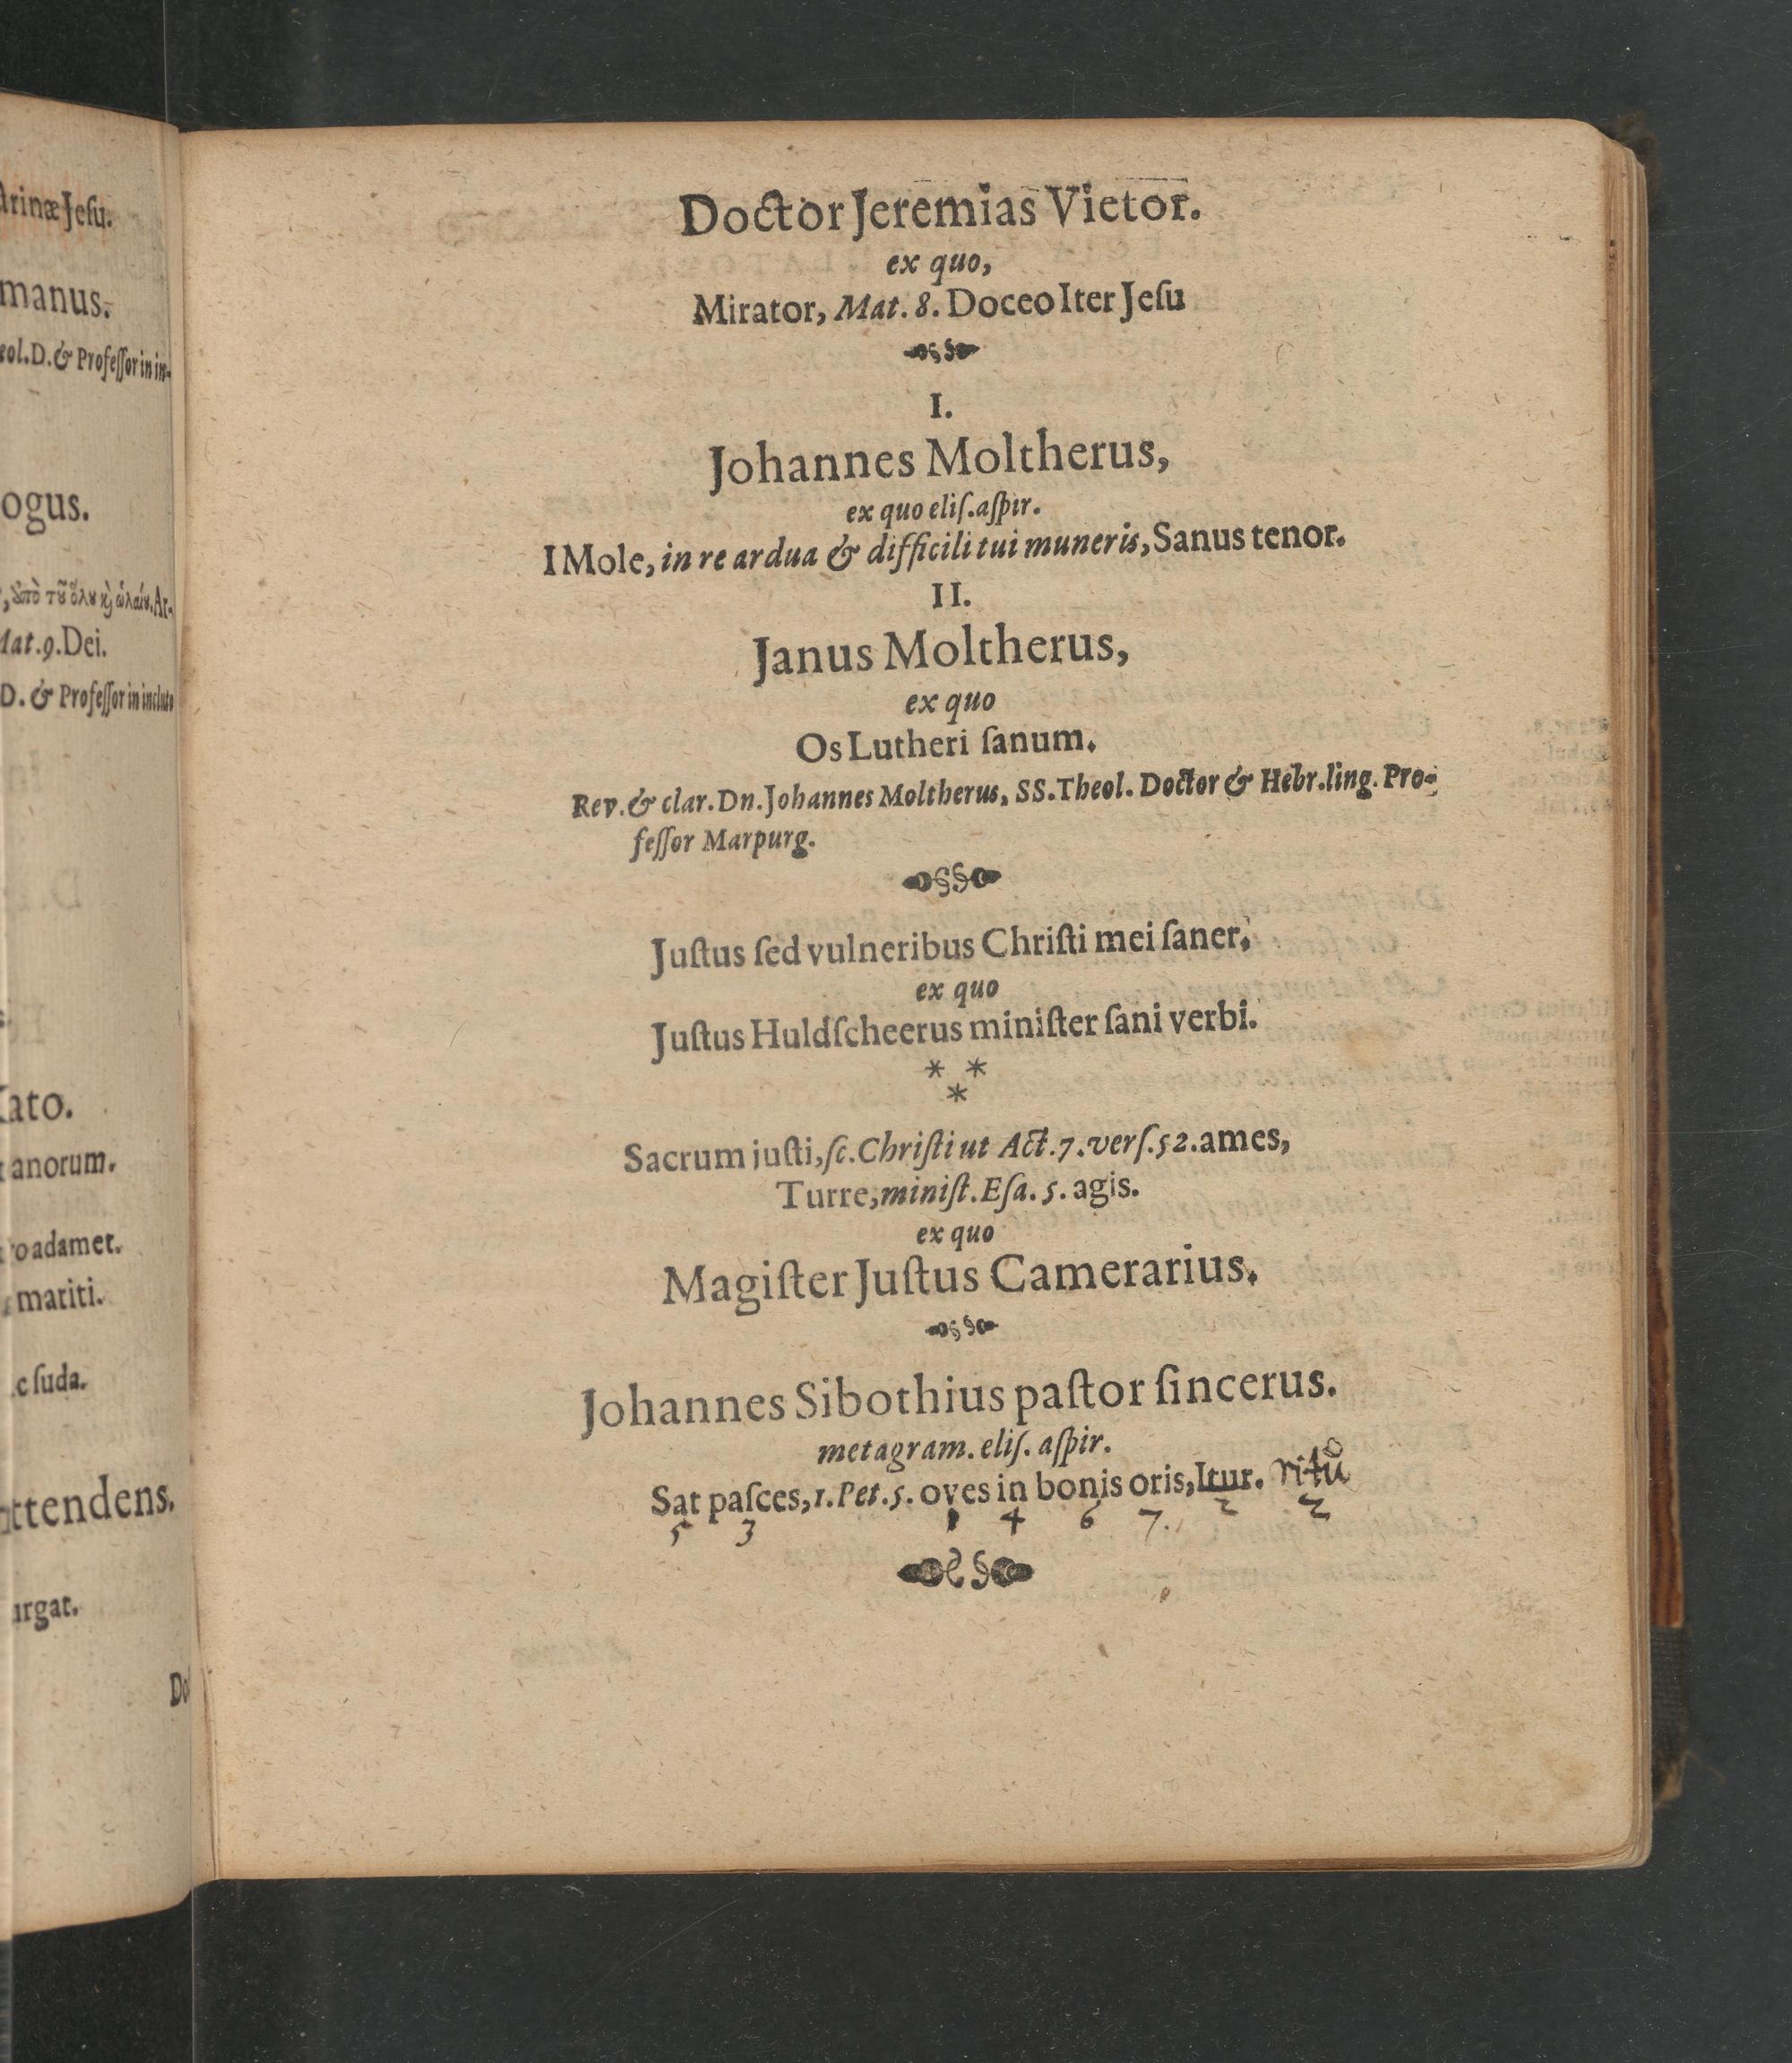 trinæ Jeſu.
manus.
eol. D. & Profeſſor in in-
ogus.
Mat. 9. Dei.
D. & Profeſſor in incluto
ato.
anorum.
ro adamet.
matiti.
c ſuda.
ttendens.
urgat.
Do
Doctor Jeremias Vietor.
ex quo,
Mirator, Mat. 8. Doceo Iter Jeſu
I.
Johannes Moltherus,
ex quo eliſ. aſpir.
I Mole, in re ardua & difficili tui muneris, Sanus tenor.
II.
Janus Moltherus,
ex quo
Os Lutheri ſanum.
Rev. & clar. Dn. Johannes Moltherus, SS. Theol. Doctor & Hebr. ling. Pro-
feſſor Marpurg.
Juſtus ſed vulneribus Chriſti mei ſaner.
ex quo
Juſtus Huldſcheerus miniſter ſani verbi.
* *
*
Sacrum juſti, ſc. Chriſti ut Act. 7. verſ. 52. ames,
Turre, miniſt. Eſa. 5. agis.
ex quo
Magiſter Juſtus Camerarius.
Johannes Sibothius paſtor ſincerus.
metagram. eliſ. aſpir.
Sat paſces, 1. Pet. 5. oves in bonis oris, Itur. ritu
5 3 1 4 6 7. 2 2